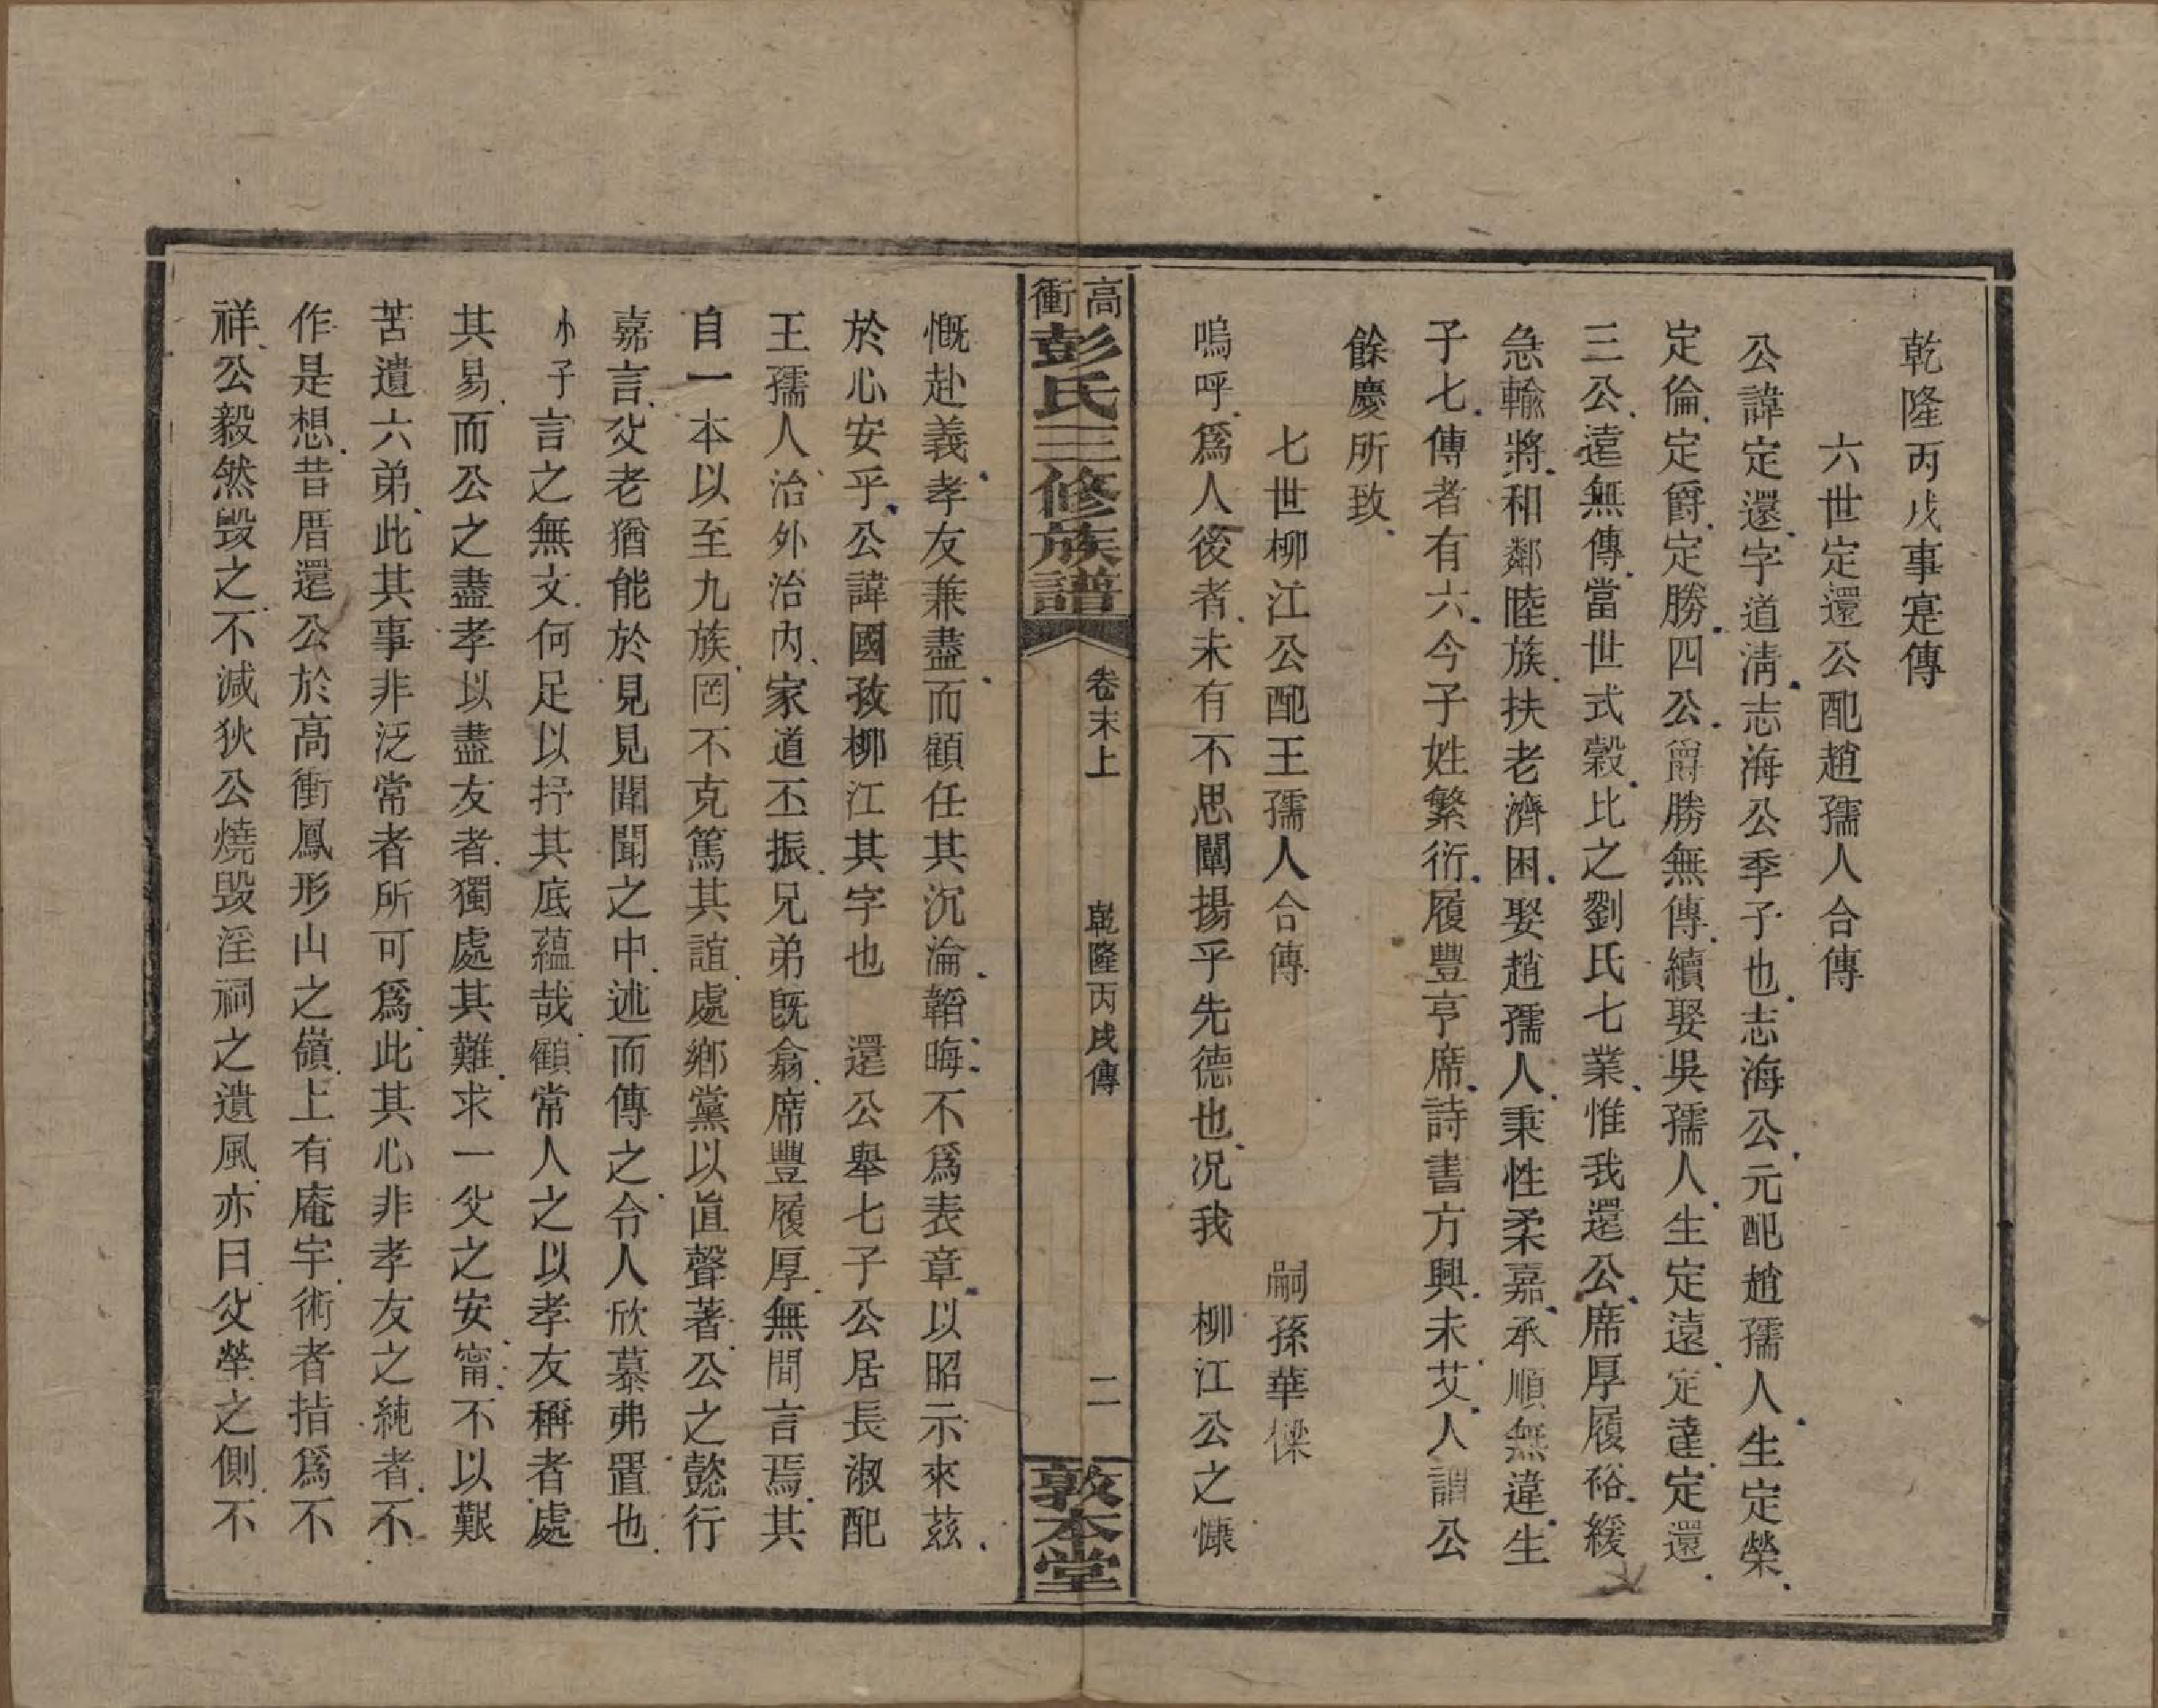 乾隆丙戌事寔傳
六世定還公配趙孺人合傳
公諱定還字道淸志海公季子也志海公元配趙孺人生定榮
定倫定爵定勝四公爵勝無傳續娶吳孺人生定遠定達定還
三公遠無傳當世式榖比之劉氏七業惟我還公席厚履裕緩
急輸將和鄰睦族扶老濟困娶趙孺人秉性柔嘉承順無違生
子七傳者有六今子姓繁衍履豐亨席詩書方興未艾人謂公
餘慶所致
七世柳江公配王孺人合傳　嗣孫華樑
嗚呼爲人後者未有不思闡揚乎先德也况我　柳江公之慷
高衝彭氏三修族譜　卷末上　乾隆丙戌傳　二　敦本堂
慨赴義孝友兼盡而顧任其沉淪韜晦不爲表章以昭示來茲
於心安乎公諱國孜柳江其字也　還公舉七子公居長淑配
王孺人治外治內家道丕振兄弟旣翕席豐履厚無間言焉其
自一本以至九族罔不克篤其誼處鄉黨以直聲著公之懿行
嘉言父老猶能於見見聞聞之中述而傳之令人欣慕弗置也
小子言之無文何足以抒其底蘊哉顧常人之以孝友稱者處
其易而公之盡孝以盡友者獨處其難求一父之安甯不以艱
苦遺六弟此其事非泛常者所可爲此其心非孝友之純者不
作是想昔厝還公於高衝鳳形山之嶺上有庵宇術者指爲不
祥公毅然毀之不減狄公燒毀淫祠之遺風亦曰父塋之側不